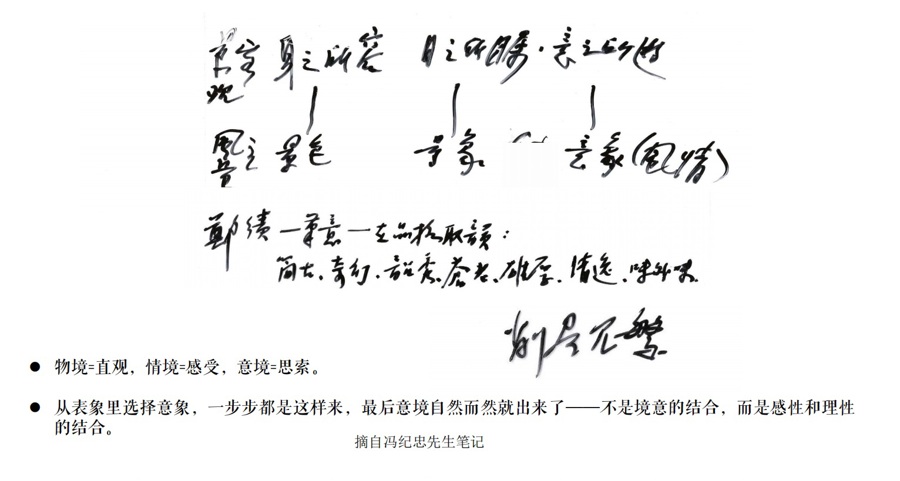 身之所容 目之所瞩·意之所游
景色 景象 意象(风情)
郑绩—筆意—在品格取韻:
简古、奇幻、韶秀、苍老、雄厚、清逸、味外味
削尽冗繁
● 物境=直观,情境=感受,意境=思索。
● 从表象里选择意象,一步步都是这样来,最后意境自然而然就出来了——不是境意的结合,而是感性和理性
的结合。
摘自冯纪忠先生笔记